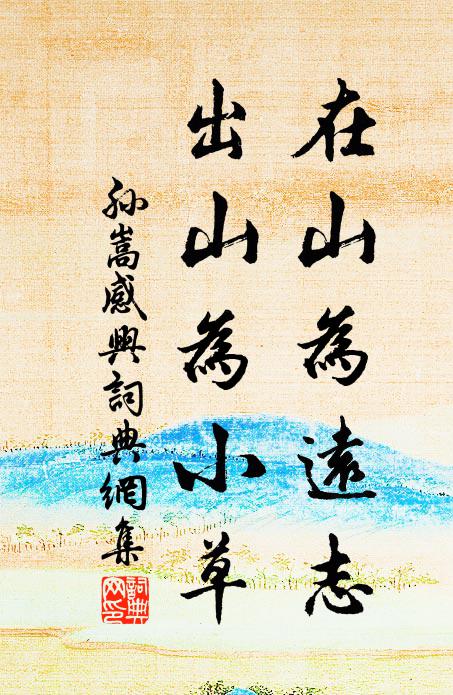 在山為遠志
出山為小草
孫嵩感興詞典網集
詞典網印